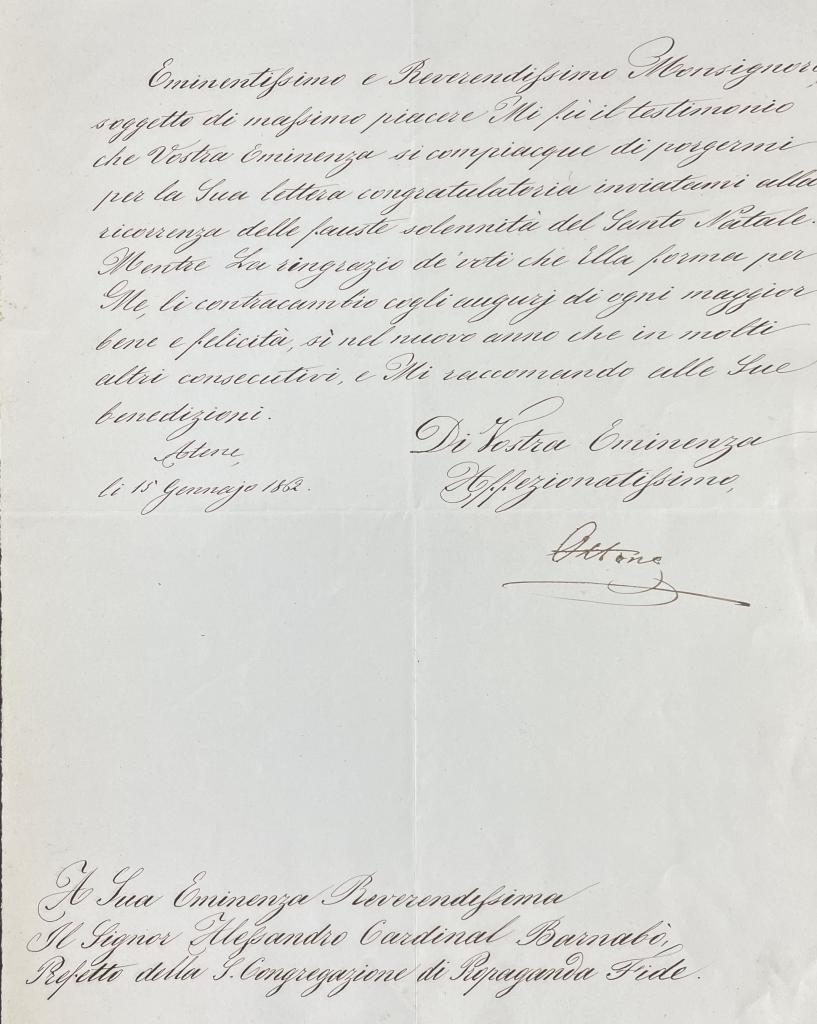 Eminentissimo e Reverendissimo Monsignore,
soggetto di massimo piacere Mi fù il testimonio
che Vostra Eminenza si compiacque di porgermi
per la Sua lettera congratulatoria inviatami alla
ricorrenza delle fauste solennità del Santo Natale.
Mentre La ringrazio de' voti che Ella forma per
Me, li contracambio cogli augurj di ogni maggior
bene e felicità, sì nel nuovo anno che in molti
altri consecutivi, e Mi raccomando alle Sue
benedizioni.
Atene,
li 15 Gennajo 1862.
Di Vostra Eminenza
Affezionatissimo,
Ottone
A Sua Eminenza Reverendissima
Il Signor Alessandro Cardinal Barnabò,
Prefetto della S. Congregazione di Propaganda Fide.